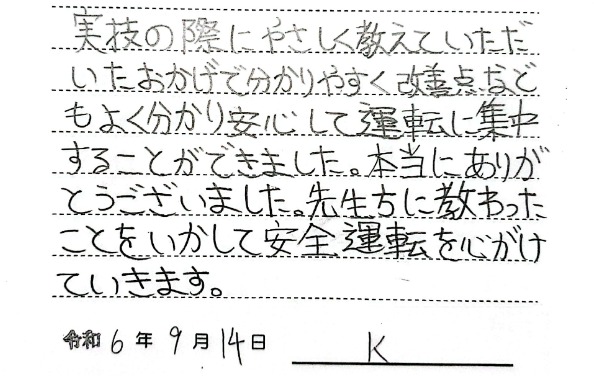 実技の際にやさしく教えていただ
いたおかげで分かりやすく改善点など
もよく分かり安心して運転に集中
することができました。本当にありが
とうございました。先生方に教わった
ことをいかして安全運転を心がけ
ていきます。
令和 6 年 9 月 14 日 K